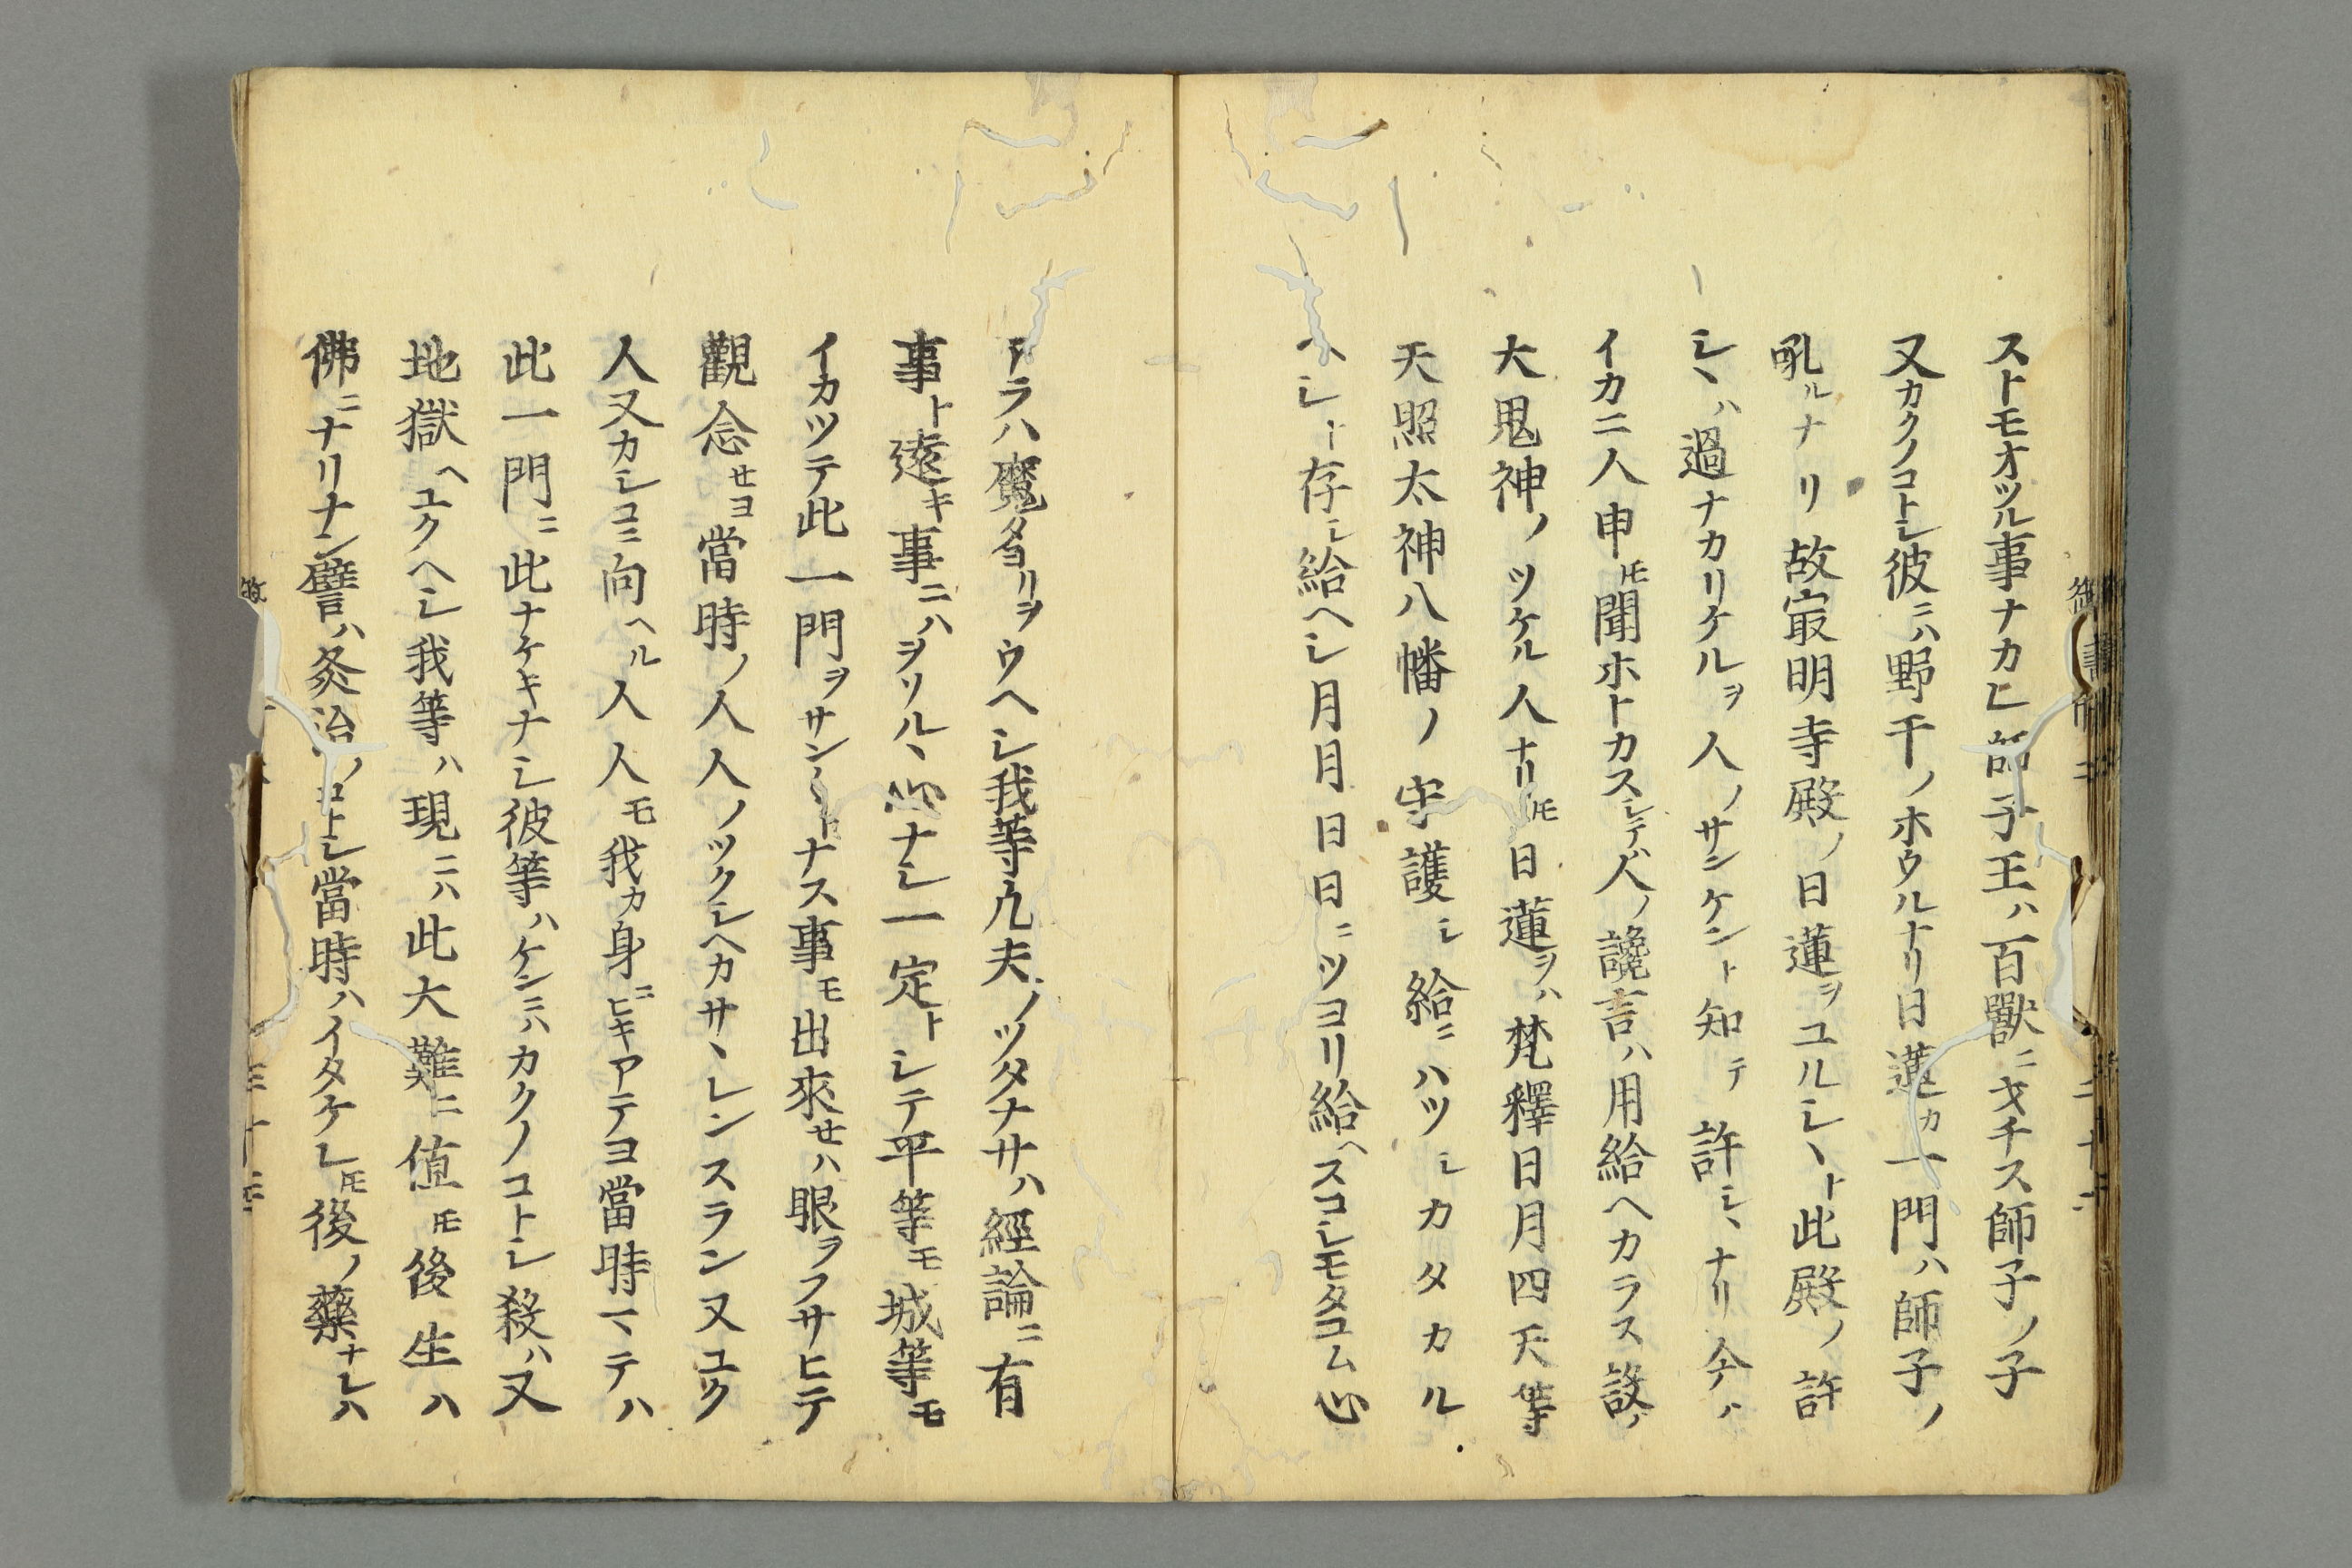 ストモオツル事ナカレ師子王ハ百獸ニヲチス師子ノ子
又カクノコトシ彼ニハ野干ノホウルナリ日蓮カ一門ハ師子ノ
吼ルナリ故最明寺殿ノ日蓮ヲユルシヽト此殿ノ許
シヽハ過ナカリケルヲ人ノサンケント知テ許シヽナリ今ハ
イカニ人申ㇳモ聞ホトカスシテハ人ノ讒言ハ用給ヘカラス設ノ
大鬼神ノツケル人ナリㇳモ日蓮ヲハ梵釋日月四天等
天照太神八幡ノ守護シ給ニハツシカタカル
ヘシト存シ給ヘシ月月日日ニツヨリ給ヘスコシモタユム心
アラハ魔タヨリヲウヘシ我等凡夫ノツタナサハ經論ニ有
事ト遠キ事ニハヲソルヽ心ナシ一定トシテ平等モ城等モ
イカツテ此一門ヲサン〱トナス事モ出來セハ眼ヲフサヒテ
觀念セヨ當時ノ人人ノツクシヘカサヽレンスラン又ユク
人又カシコニ向ヘル人人モ我カ身ニヒキアテヨ當時マテハ
此一門ニ此ナケキナシ彼等ハケンニハカクノコトシ殺ハ又
地獄ヘユクヘシ我等ハ現ニハ此大難ニ値ㇳモ後生ハ
佛ニナリナン譬ハ灸治ノコトシ當時ハイタケレㇳモ後ノ藥ナレハ